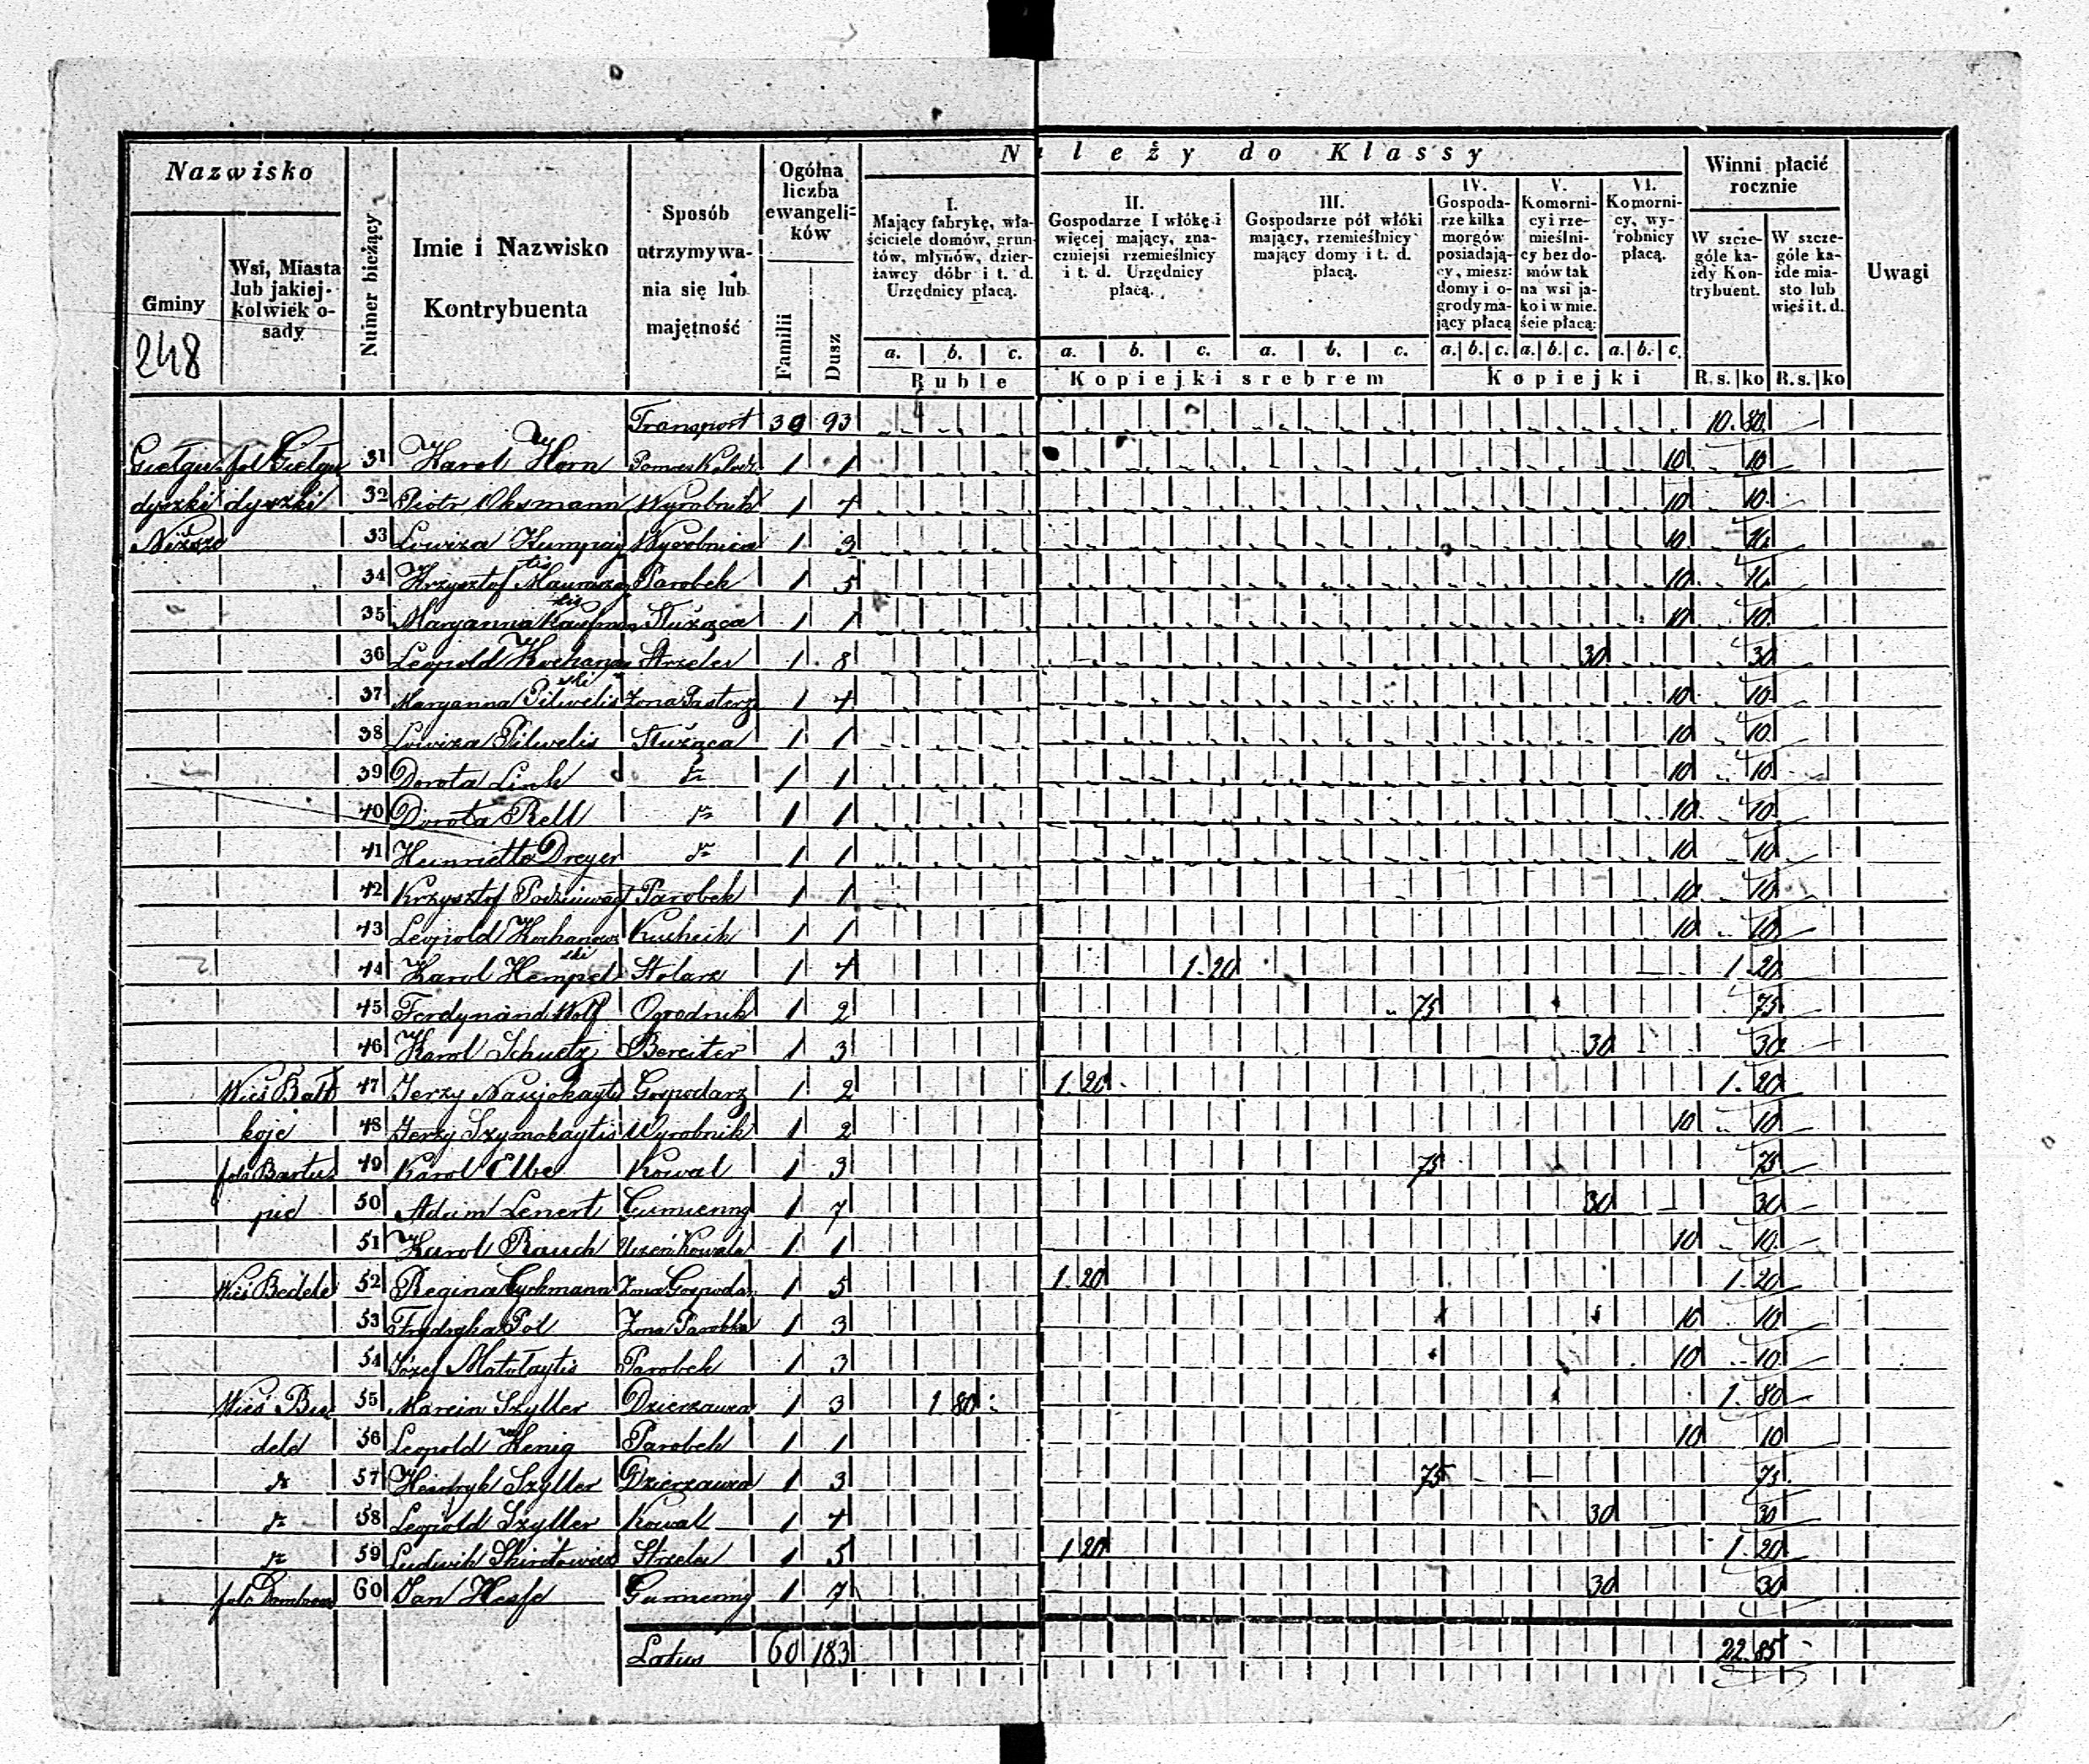 Nazwisko
Gminy
Wsi, Miasta lub jakiej- kolwiek o- sady
Numer bieżący
Imie i Nazwisko Kontrybuenta
Sposób utrzymywa- nia się lub majętność
Ogólna liczba ewangeli= ków
Familii
Dusz
Należy do Klassy
I. Mający fabrykę, wła- ściciele domów, grun- tów, młynów, dzier- żawcy dóbr i t. d. Urzędnicy płacą.
II. Gospodarze I włókę i więcej mający, zna- czniejsi rzemieślnicy i t. d. Urzędnicy płacą.
III. Gospodarze pół włóki mający, rzemieślnicy mający domy i t. d. płacą.
IV. Gospoda- rze kilka morgów posiadają- cy, miesz: domy i o- grody ma- jący płacą
V. Komorni- cy i rze- mieślni- cy bez do- mów tak na wsi ja- ko i w mie. ście płacą:
VI. Komorni- cy, wy- robnicy płacą.
Winni płacić rocznie
W szcze- góle ka- żdy Kon- trybuent.
W szcze- góle ka- żde mia- sto lub wieś i t. d.
Uwagi
a. b. c. a. b. c. a. b. c. a. b. c. a. b. c. a. b. c.
Ruble Kopiejki srebrem Kopiejki R.s. ko R.s. ko
248
Transport 30 93 10. 80
Giełgu= fol Giełgu 31 Karol Horn 1 1 10 10
dyszki dyszki 32 Piotr Oksmann Wyrobnik 1 4 10 10
Niższe 33 Lowiza Kumpaj Wyrobnica 1 3 10 10
tis
34 Krzysztof Parobek 1 5 10 10
35 Maryanna Służąca 1 1 10 10
36 Leopold Kochanow Strzelec 1 8 30 30
ski
37 Maryanna Pilwelis Żona Pasterz 1 4 10 10
38 Lowiza Pilwelis Służąca 1 1 10 10
39 Dorota Link dto 1 1 10 10
40 Dorota Rell dto 1 1 10 10
41 Heinrietta Dreyer dto 1 1 10 10
42 Krzysztof Parobek 1 1 10 10
43 Leopold Kochanows Kucheik 1 1 10 10
ski
44 Karol Hempel Stolarz 1 4 1. 20 1. 20
45 Ferdynand Wolf Ogrodnik 1 2 75 75
46 Karol Schuetz Bereiter 1 3 30 30
Wieś Bałt 47 Jerzy Naujokaytis Gospodarz 1 2 1. 20 1. 20
koje 48 Jerzy Szymokaytis Wyrobnik 1 2 10 10
fol. Bartu 49 Karol Elbe Kowal 1 3 75 75
pie 50 Adam Lenert Gumienny 1 7 30 30
51 Karol Rauch Uczeń Kowala 1 1 10 10
Wieś Bedele 52 Regina Cyckmann Żona Gospoda 1 5 1. 20 1. 20
53 Frydryka Pol Żona Parobka 1 3 10 10
54 Józef Matołaytis Parobek 1 3 10 10
Wieś Bu 55 Marcin Szyller Dzierzawca 1 3 1 80 1. 80
dele 56 Leopold Henig Parobek 1 1 10 10
dto 57 Heinryk Szyller Dzierzawca 1 3 75 75
dto 58 Leopold Szyller Kowal 1 4 30 30
dto 59 Ludwik Strzelec 1 5 1. 20 1. 20
60 Jan Hesse Gumienny 1 7 30 30
Latus 60 183 22. 85